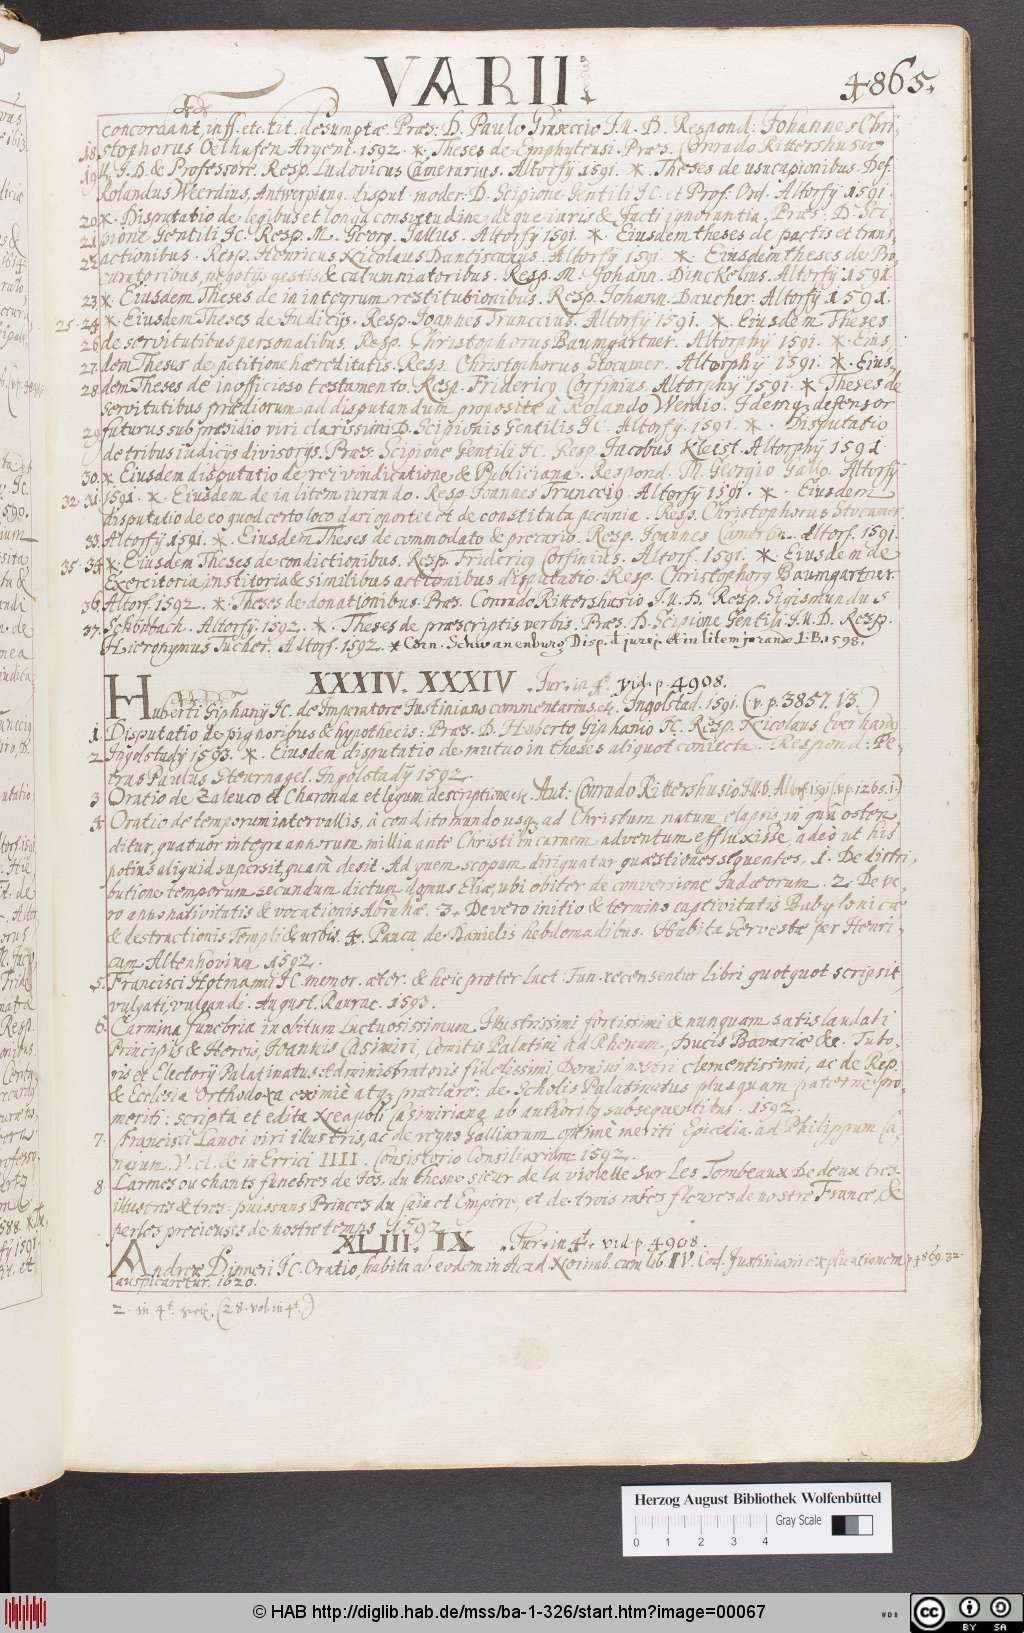 VARII
4865.
concordant, in ff. etc. tit. desumptæ. Præs: D. Paulo Graseccio J.U.D. Respond: Johannes Chri-
18 stophorus Oelhafen Argent. 1592. * Theses de Emphyteusi. Præs. Conrado Rittershusio
19 J.D. & Professore. Resp. Ludovicus Camerarius. Altorfÿ 1591. * Theses de usucapionibus. Def.
Rolandus Weerdius, Antwerpiang. disput. moder. D. Scipione Gentili JC. et Prof. Ord. Altorfÿ 1591.
20 * Disputatio de legibus et longa consuetudine, deque iuris & facti ignorantia. Præs. D. Sci-
21 pione Gentili JC. Resp. M. Georg. Gallus. Altorfÿ 1591. * Eiusdem theses de pactis et trans-
22 actionibus. Resp. Henricus Nicolaus Dantiscanus. Altorfÿ 1591. * Eiusdem theses de Pro-
curatoribus, negotÿs gestis & calumniatoribus. Resp. M. Johann. Dinckelius. Altorfÿ 1591.
23 * Eiusdem Theses de in integrum restitutionibus. Resp. Johann. Baucher. Altorfÿ 1591.
25. 24 * Eiusdem Theses de Judicÿs. Resp. Joannes Trunccius. Altorfÿ 1591. * Eiusdem Theses
26 de servitutibus personalibus. Resp. Christophorus Baumgartner. Altorphÿ 1591. * Eius-
27 dem Theses de petitione hæreditatis. Resp. Christophorus Stocamer. Altorphÿ 1591. * Eius-
28 dem Theses de inofficioso testamento. Resp. Fridericq Corfinius. Altorphÿ 1591. * Theses de
servitutibus prædiorum ad disputandum propositæ à Rolando Werdio. Idemq. defensor
29 futurus sub præsidio viri clarissimi D. Scipionis Gentilis JC. Altorfÿ. 1591. * Disputatio
de tribus iudicÿs divisorÿs. Præs. Scipione Gentili JC. Resp. Jacobus Kleist. Altorphÿ 1591.
30. * Eiusdem disputatio de rei vindicatione & Publiciana. Respond. M. Georgio Gallo. Altorfÿ
32. 31. 1591. * Eiusdem de in litem iurando. Resp. Joannes Truncciq. Altorfÿ 1591. * Eiusdem
disputatio de eo quod certo loco dari oportet et de constituta pecunia. Resp. Christophorus Stocamer.
33. Altorfÿ 1591. * Eiusdem Theses de commodato & precario. Resp. Joannes Camerlin. Altorf. 1591.
35. 34 * Eiusdem Theses de condictionibus. Resp. Fridericq Corfinius. Altorf. 1591. * Eiusdem de
Exercitoria, institoria & similibus actionibus disputatio. Resp. Christophorq Baumgartner.
36. Altorf. 1592. * Theses de donationibus. Præs. Conrado Rittershusio J.U.D. Resp. Sigismundus
37. Schönbach. Altorfÿ. 1592. * Theses de præscriptis verbis. Præs. D. Scipione Gentili J.U.D. Resp.
Hieronymus Tucher. Altorf. 1592. * Corn. Schwanenburg Disp. d jurej. & in litem jurando L.B. 1598.
XXXIV. XXXIV. Jur. in 4t. vid. p. 4908.
Huberti Giphany JC. de Imperatore Justiniano commentarius &c. Ingolstad. 1591. (v. p. 3857. 13.)
1 Disputatio de pignoribus & hypothecis. Præs. D. Huberto Giphanio JC. Resp. Nicolaus Everhardq
2 Ingolstadÿ 1593. * Eiusdem disputatio de mutuo in theses aliquot coniecta. Respond: Pe-
trus Paulus Steurnagel. Ingolstadÿ 1592.
3 Oratio de Zaleuco et Charonda et legum descriptione &c. Aut: Conrado Rittershusio J.U.D. Altorf. 1591. (v. p. 1265. 1.)
4 Oratio de temporum intervallis, à condito mundo usq. ad Christum natum elapsis, in qua osten-
ditur, quatuor integra annorum millia ante Christi in carnem adventum effluxisse, adeò ut his
potius aliquid supersit, quam desit. Ad quem scopum diriguntur quæstiones sequentes, 1. De distri-
butione temporum secundum dictum domus Eliæ, ubi obiter de conversione Judæorum. 2. De ve-
ro anno nativitatis & vocationis Abrahæ. 3. De vero initio & termino captivitatis Babylonicæ
& destructionis Templi & urbis. 4. Pauca de Danielis hebdomadibus. Habita Servestæ per Henri-
cum Altenhovium 1592.
5. Francisci Hotmanni JC. memor. æter. & heic præter Luct. Fun. recensentur libri quotquot scripsit
vulgati, vulgandi. August. Raurac. 1593.
6. Carmina funebria in obitum Luctuosissimum Illustrissimi fortissimi & nunquam satis laudati
Principis & Herois, Joannis Casimiri, Comitis Palatini ad Rhenum, Ducis Bavariæ &c. Tuto-
ris et Electorÿ Palatinatus Administratoris fidelissimi, Domini nostri clementissimi, ac de Rep.
& Ecclesia Orthodoxa eximiè atq. præclarè: de Scholis Palatinatus plusquam paternè pro-
meriti: scripta et edita Neapoli Casimiriana ab authoribq subsequentibus. 1592.
7. Francisci Lanoi viri illustris, ac de regno Galliarum optimè meriti Epicedia. ad Philippum Ca-
naium. V. cl. & in Errici IIII. Consistorio Consiliarium. 1592.
8. Larmes ou chants funebres de Jos. du chesne sieur de la violette Sur Les Tombeaux De deux tres-
illustres & tres-puissans Princes du Sainct Empire, et de trois rares fleures de nostre France, &
perles precieuses de nostre temps. 1592.
XLIII. IX Jur. in 4t. vid. p. 4908.
Andreæ Dinneri JC. Oratio, habita ab eodem in Acad. Norimb. cum lib. IV Cod. Justiniani explicationem p. 4869. 32.
auspicaretur. 1620.
2. in 4t. (28. vol. in 4t.)
Herzog August Bibliothek Wolfenbüttel
Gray Scale
0 1 2 3 4
© HAB http://diglib.hab.de/mss/ba-1-326/start.htm?image=00067
WDB
CC BY SA